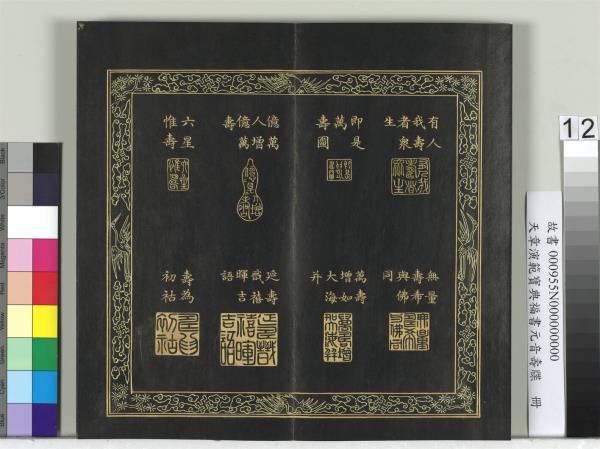 有人
我壽
者衆
生
即是
萬
壽圖
億萬
人增
億萬
壽
六星
惟壽
無量
壽希
與佛
同
萬壽
增如
大海
并
延壽
哉禧
暉吉
語
壽為
初祜
12
故書 000955N000000000
天章演範寶典福書元音壽牒 冊
Black
3/Color
White
Magenta
Red
Yellow
Green
Cyan
Blue